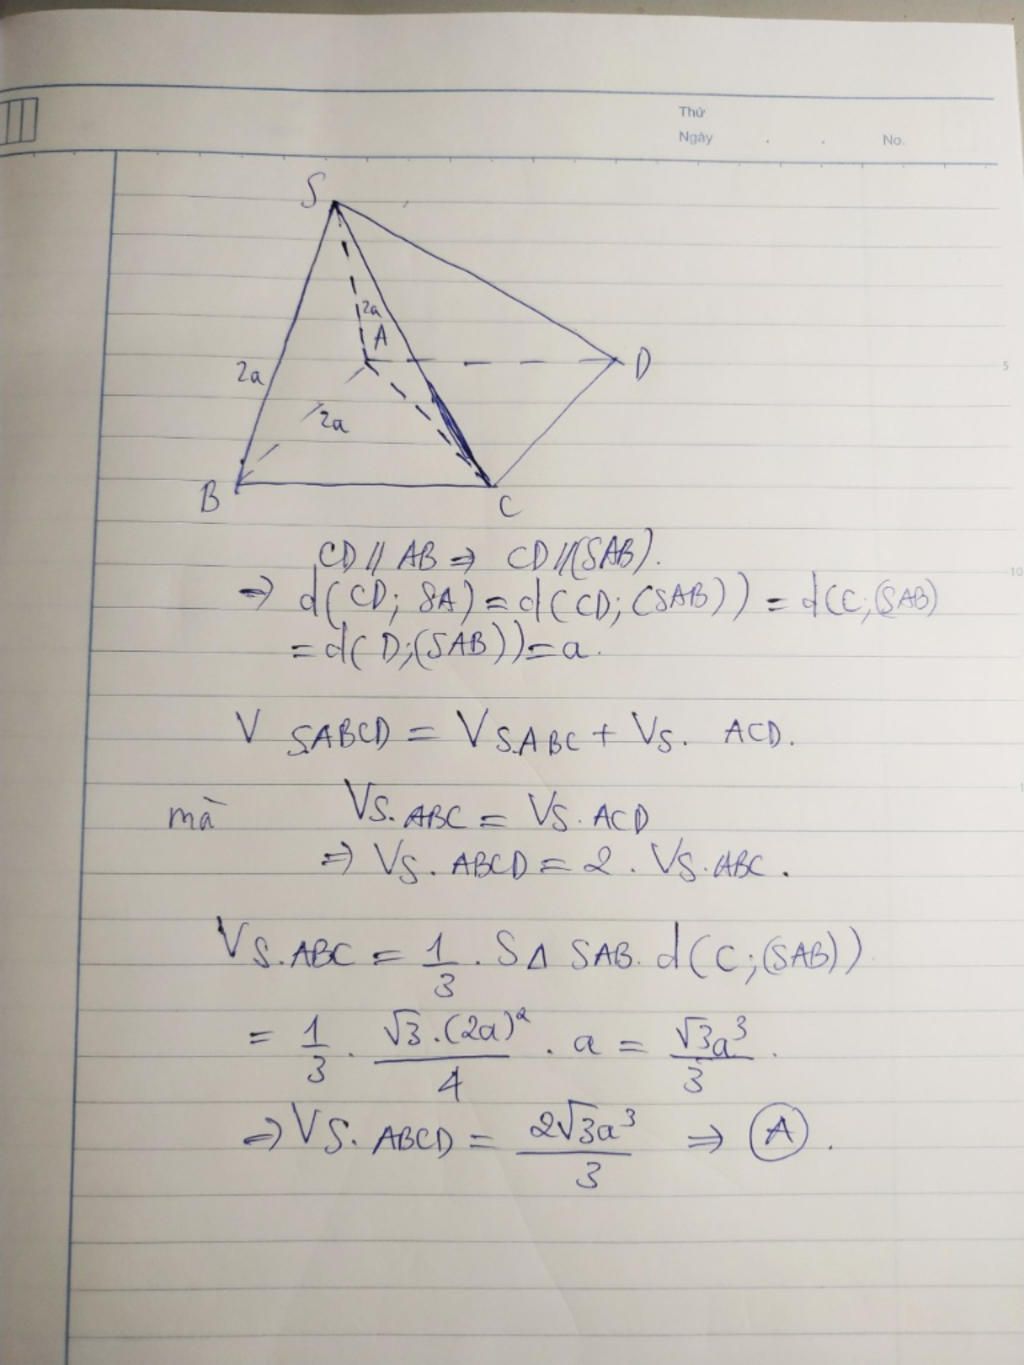 Thứ
Ngày . . No.
S
2a
A
D
5
2a
2a
B
C
CD // AB ⇒ CD // (SAB).
10
⇒ d(CD; SA) = d(CD; (SAB)) = d(C; (SAB)
= d(D; (SAB)) = a.
V S.ABCD = V S.ABC + V S. ACD.
mà V S.ABC = V S.ACD
⇒ V S.ABCD = 2 . V S.ABC .
V S.ABC = 1/3 . S Δ SAB . d(C; (SAB))
= 1/3 . √3.(2a)²/4 . a = √3a³/3 .
⇒ V S.ABCD = 2√3a³/3 ⇒ A .